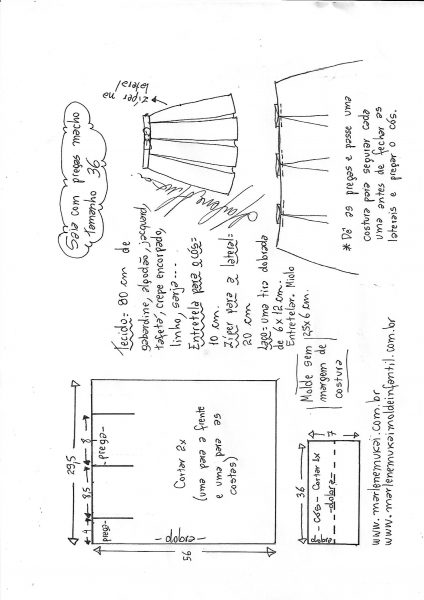 Saia com pregas macho
Tamanho 36
zíper na
lateral
Tecido = 80 cm de
gabardine, algodão, jacquard,
tafetá, crepe encorpado,
linho, sarja...
Entretela para o cós =
10 cm.
Zíper para a lateral =
20 cm
Laço = uma tira dobrada
de 6 x 12 cm.
Entretelar. Miolo
1,25x6 cm.
Molde sem
margem de
costura
* Dê as pregas e passe uma
costura para segurar cada
uma antes de fechar as
laterais e prepar o cós.
29,5
4
8,5
8
prega
prega
Cortar 2x
(uma para a frente
e uma para as
costas)
dobra
56
36
7
Cós - Cortar 1x
dobra
dobra
www.marlenemukai.com.br
www.marlenemukai.moldeinfantil.com.br